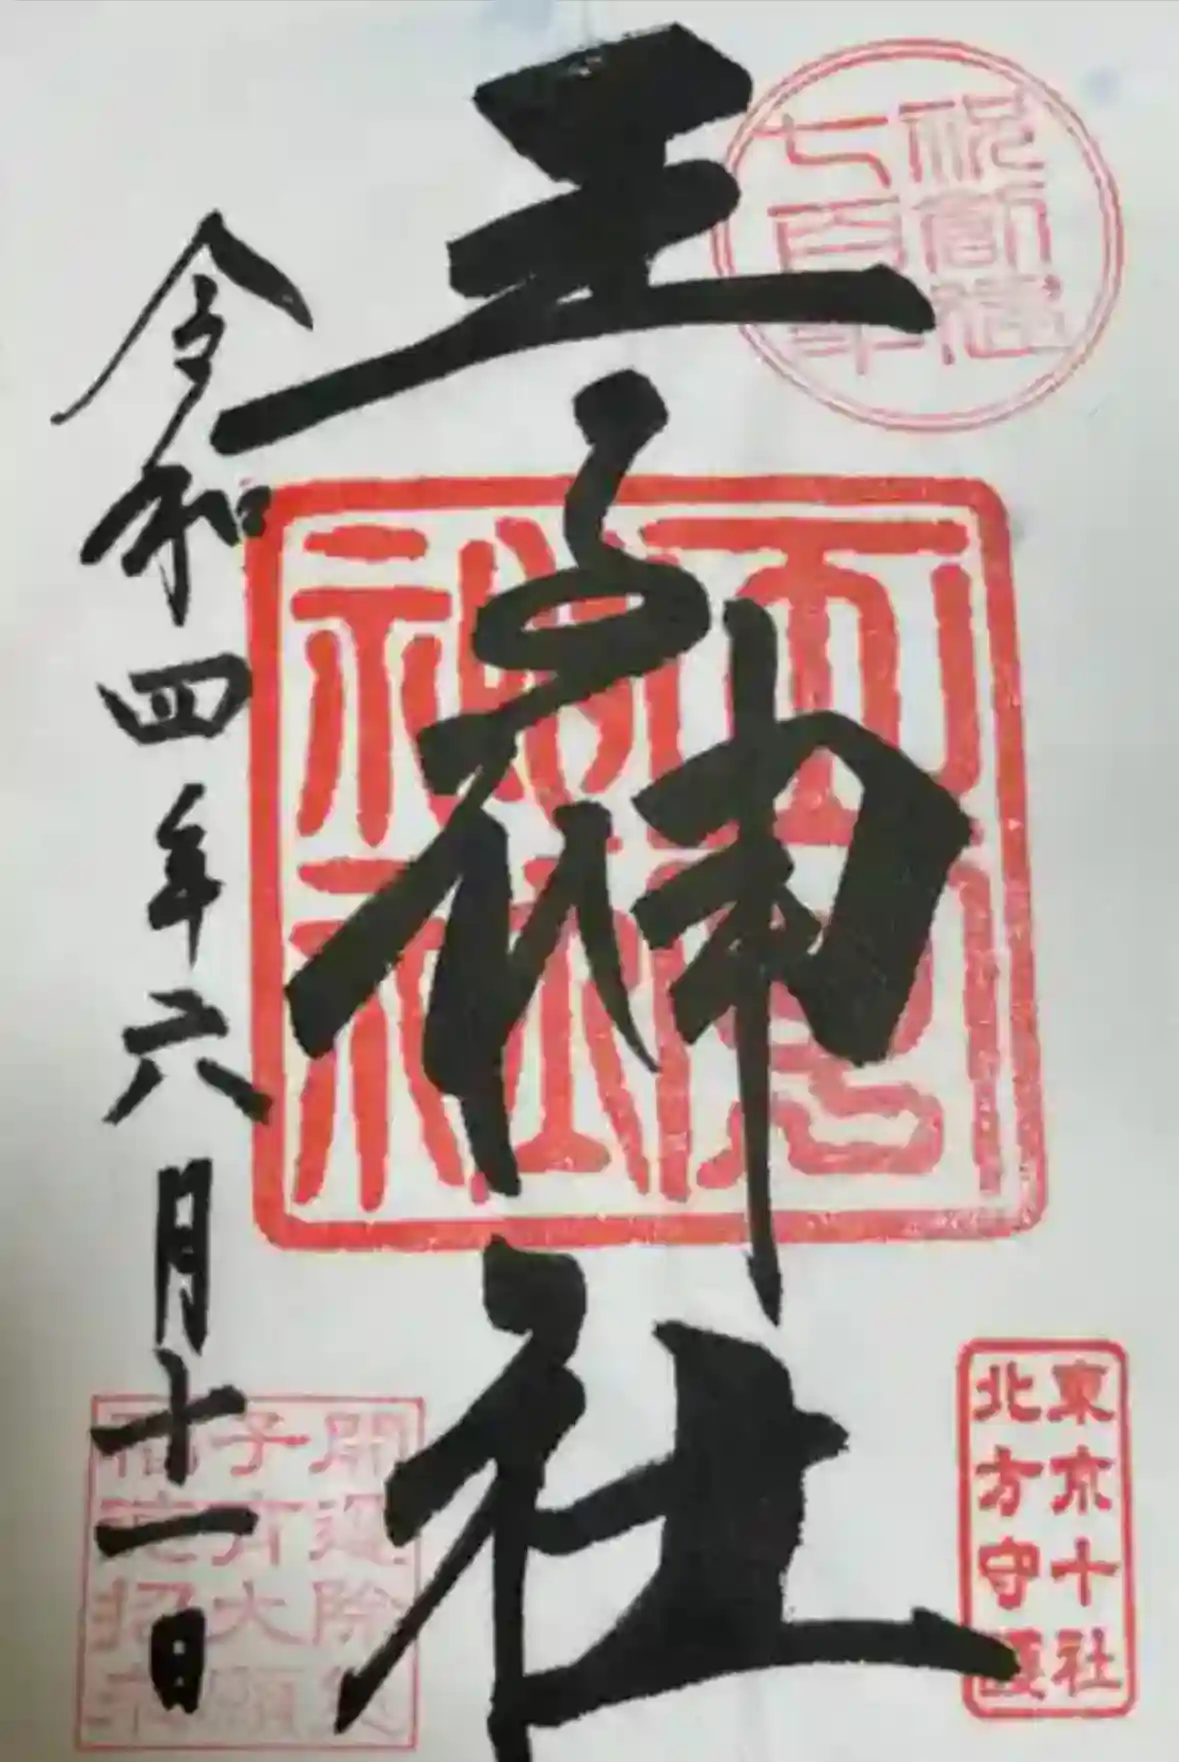 祝御鎮座
七百年
王子神社
東京十社
北方守護
令和四年六月十一日
開運除災
子育大願
福徳招来